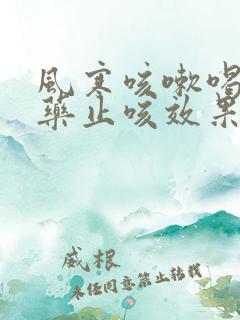 风寒咳嗽喝
药止咳效果
威根
未经同意禁止转载